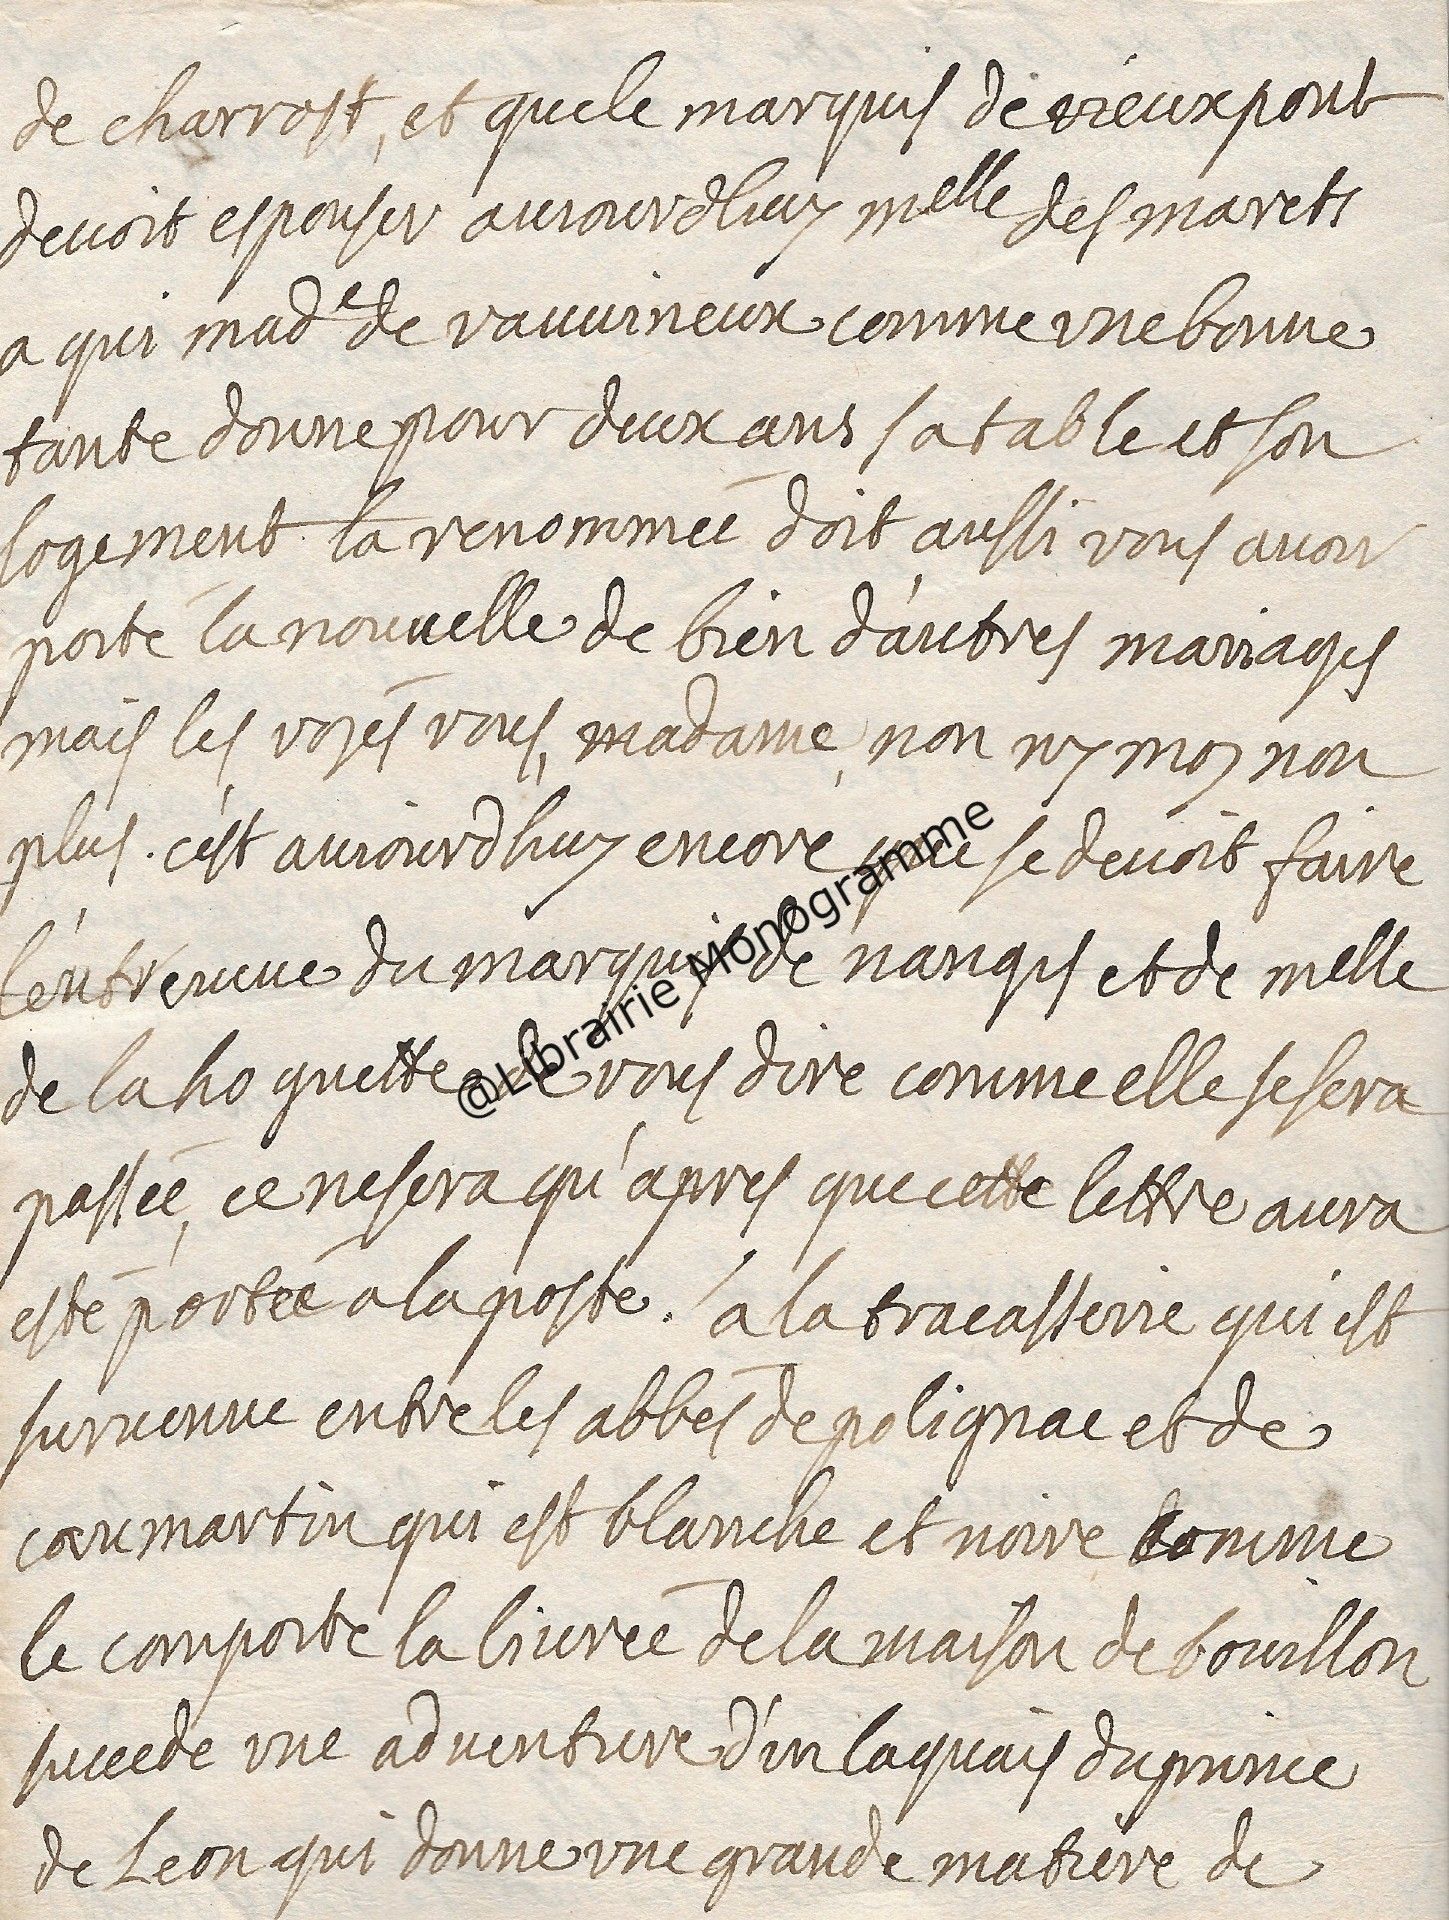 de charrost, et que le marquis de vieuxpont
deuoit espouser auiourdhuy melle des marets
a qui made de vauuineux comme vne bonne
tante donne pour deux ans sa table et son
logement la renommée doit aussi vous auoir
porté la nouuelle de bien d'autres mariages
mais les voyés vous, madame, non ny moy non
plus. c'est auiourdhuy encore que se deuoit faire
l'entreuue du marquis de nangis et de melle
de la hoguette de vous dire comme elle se sera
passée, ce ne sera qu'apres que cette lettre aura
esté portée a la poste. a la tracasserie qui est
suruenue entre les abbés de polignac et de
caumartin qui est blanche et noire comme
le comporte la liurée de la maison de bouillon
succede vne aduenture d'vn laquais du prince
de Leon qui donne vne grande matiere de
@Librairie Monogramme